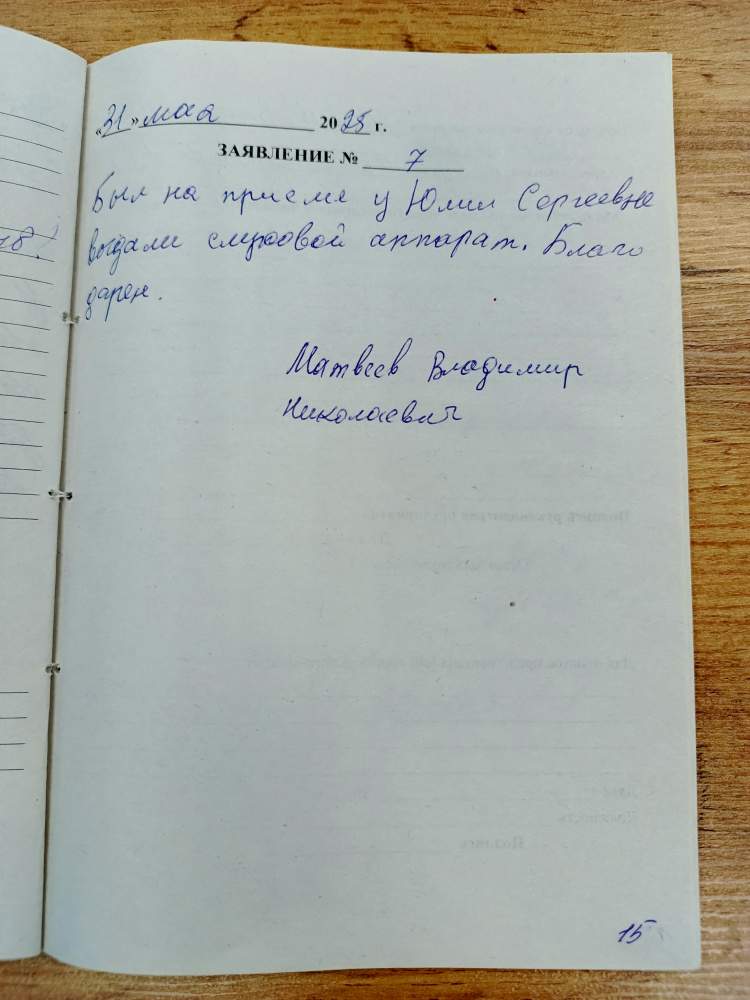 «31» мая 2025 г.
ЗАЯВЛЕНИЕ № 7
Был на приеме у Юлии Сергеевне
выдали слуховой аппарат. Благо
дарен.
Матвеев Владимир
Николаевич
15